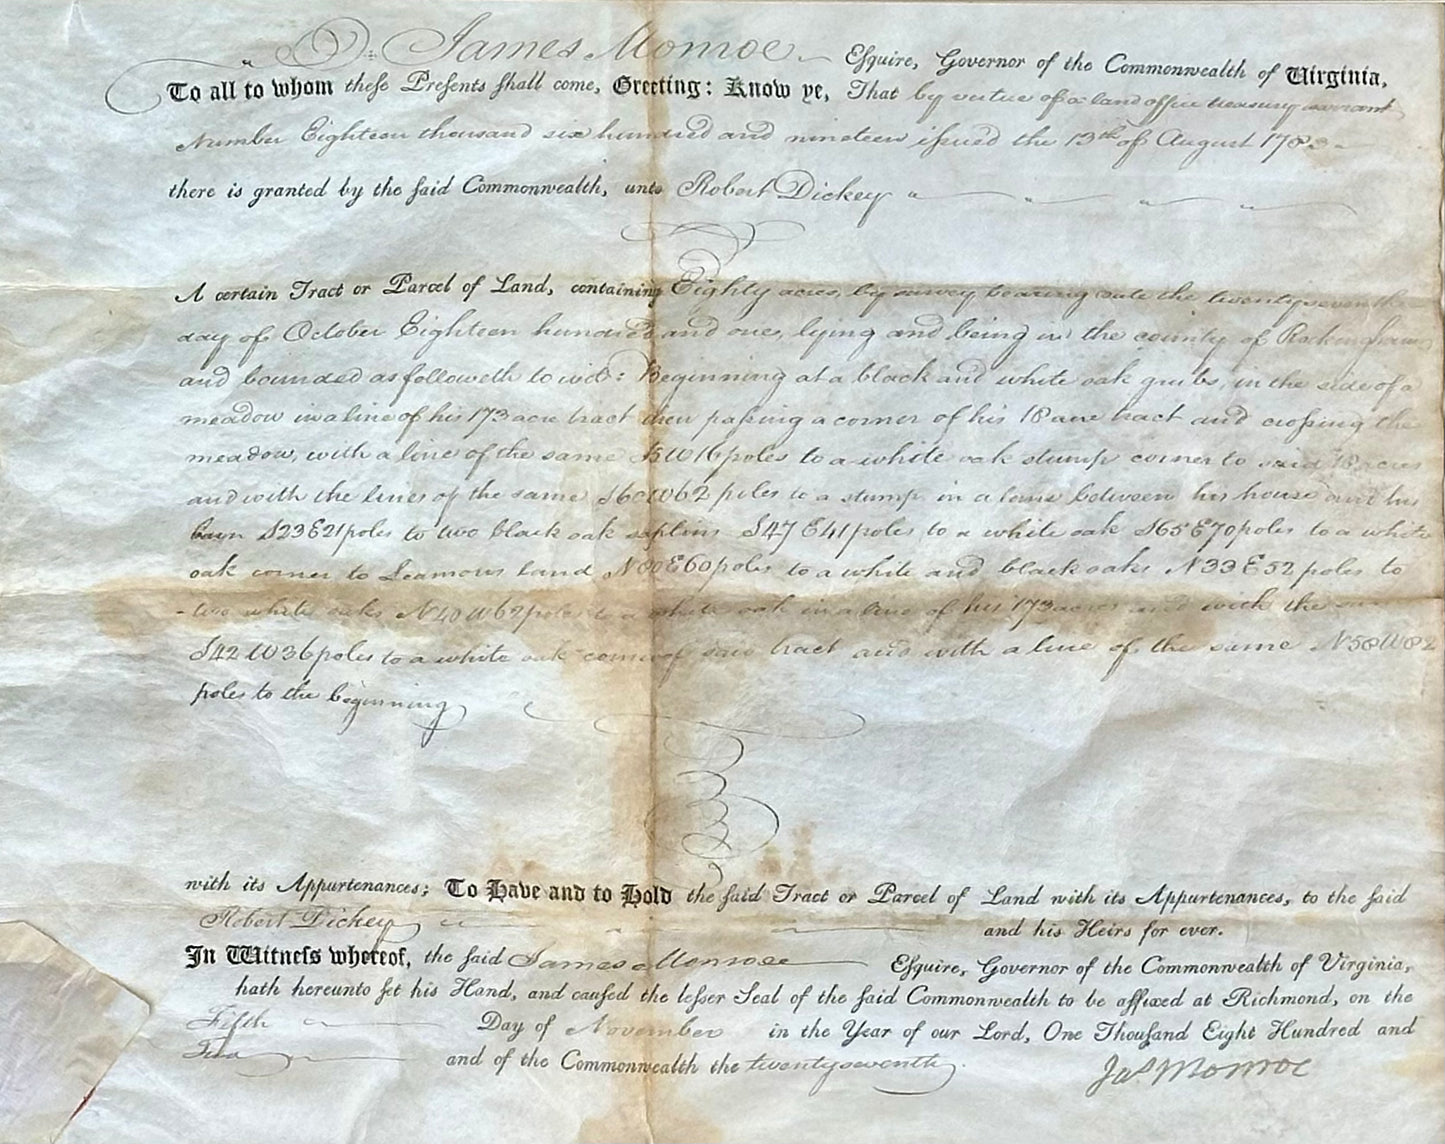 James Monroe Esquire, Governor of the Commonwealth of Virginia,
To all to whom these Presents shall come, Greeting: Know ye, That by virtue of a land office treasury warrant
Number Eighteen thousand six hundred and nineteen issued the 13th of August 1783
there is granted by the said Commonwealth, unto Robert Dickey
A certain Tract or Parcel of Land, containing Eighty acres, by survey bearing date the twentyseventh
day of October Eighteen hundred and one, lying and being in the county of Rockingham
and bounded as followeth to wit: Beginning at a black and white oak grubs, in the side of a
meadow in a line of his 173 acre tract then passing a corner of his 18 acre tract and crossing the
meadow, with a line of the same 16 poles to a white oak stump corner to said 18 acres
and with the lines of the same S60W62 poles to a stump in a lane between his house and his
barn S23E21 poles to two black oak saplins S47E41 poles to a white oak S65E70 poles to a white
oak corner to Leamons land N80E60 poles to a white and black oaks N33E52 poles to
two white oaks N40W62 poles to a white oak in a line of his 173 acres and with the same
S42W36 poles to a white oak corner of said tract and with a line of the same N58W82
poles to the beginning
with its Appurtenances; To Have and to Hold the said Tract or Parcel of Land with its Appurtenances, to the said
Robert Dickey and his Heirs for ever.
In Witness whereof, the said James Monroe Esquire, Governor of the Commonwealth of Virginia,
hath hereunto set his Hand, and caused the lesser Seal of the said Commonwealth to be affixed at Richmond, on the
Fifth Day of November in the Year of our Lord, One Thousand Eight Hundred and
Two and of the Commonwealth the twentyseventh.
Jas Monroe